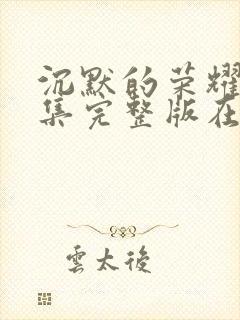 沉默的荣耀
集完整版在
雲太後